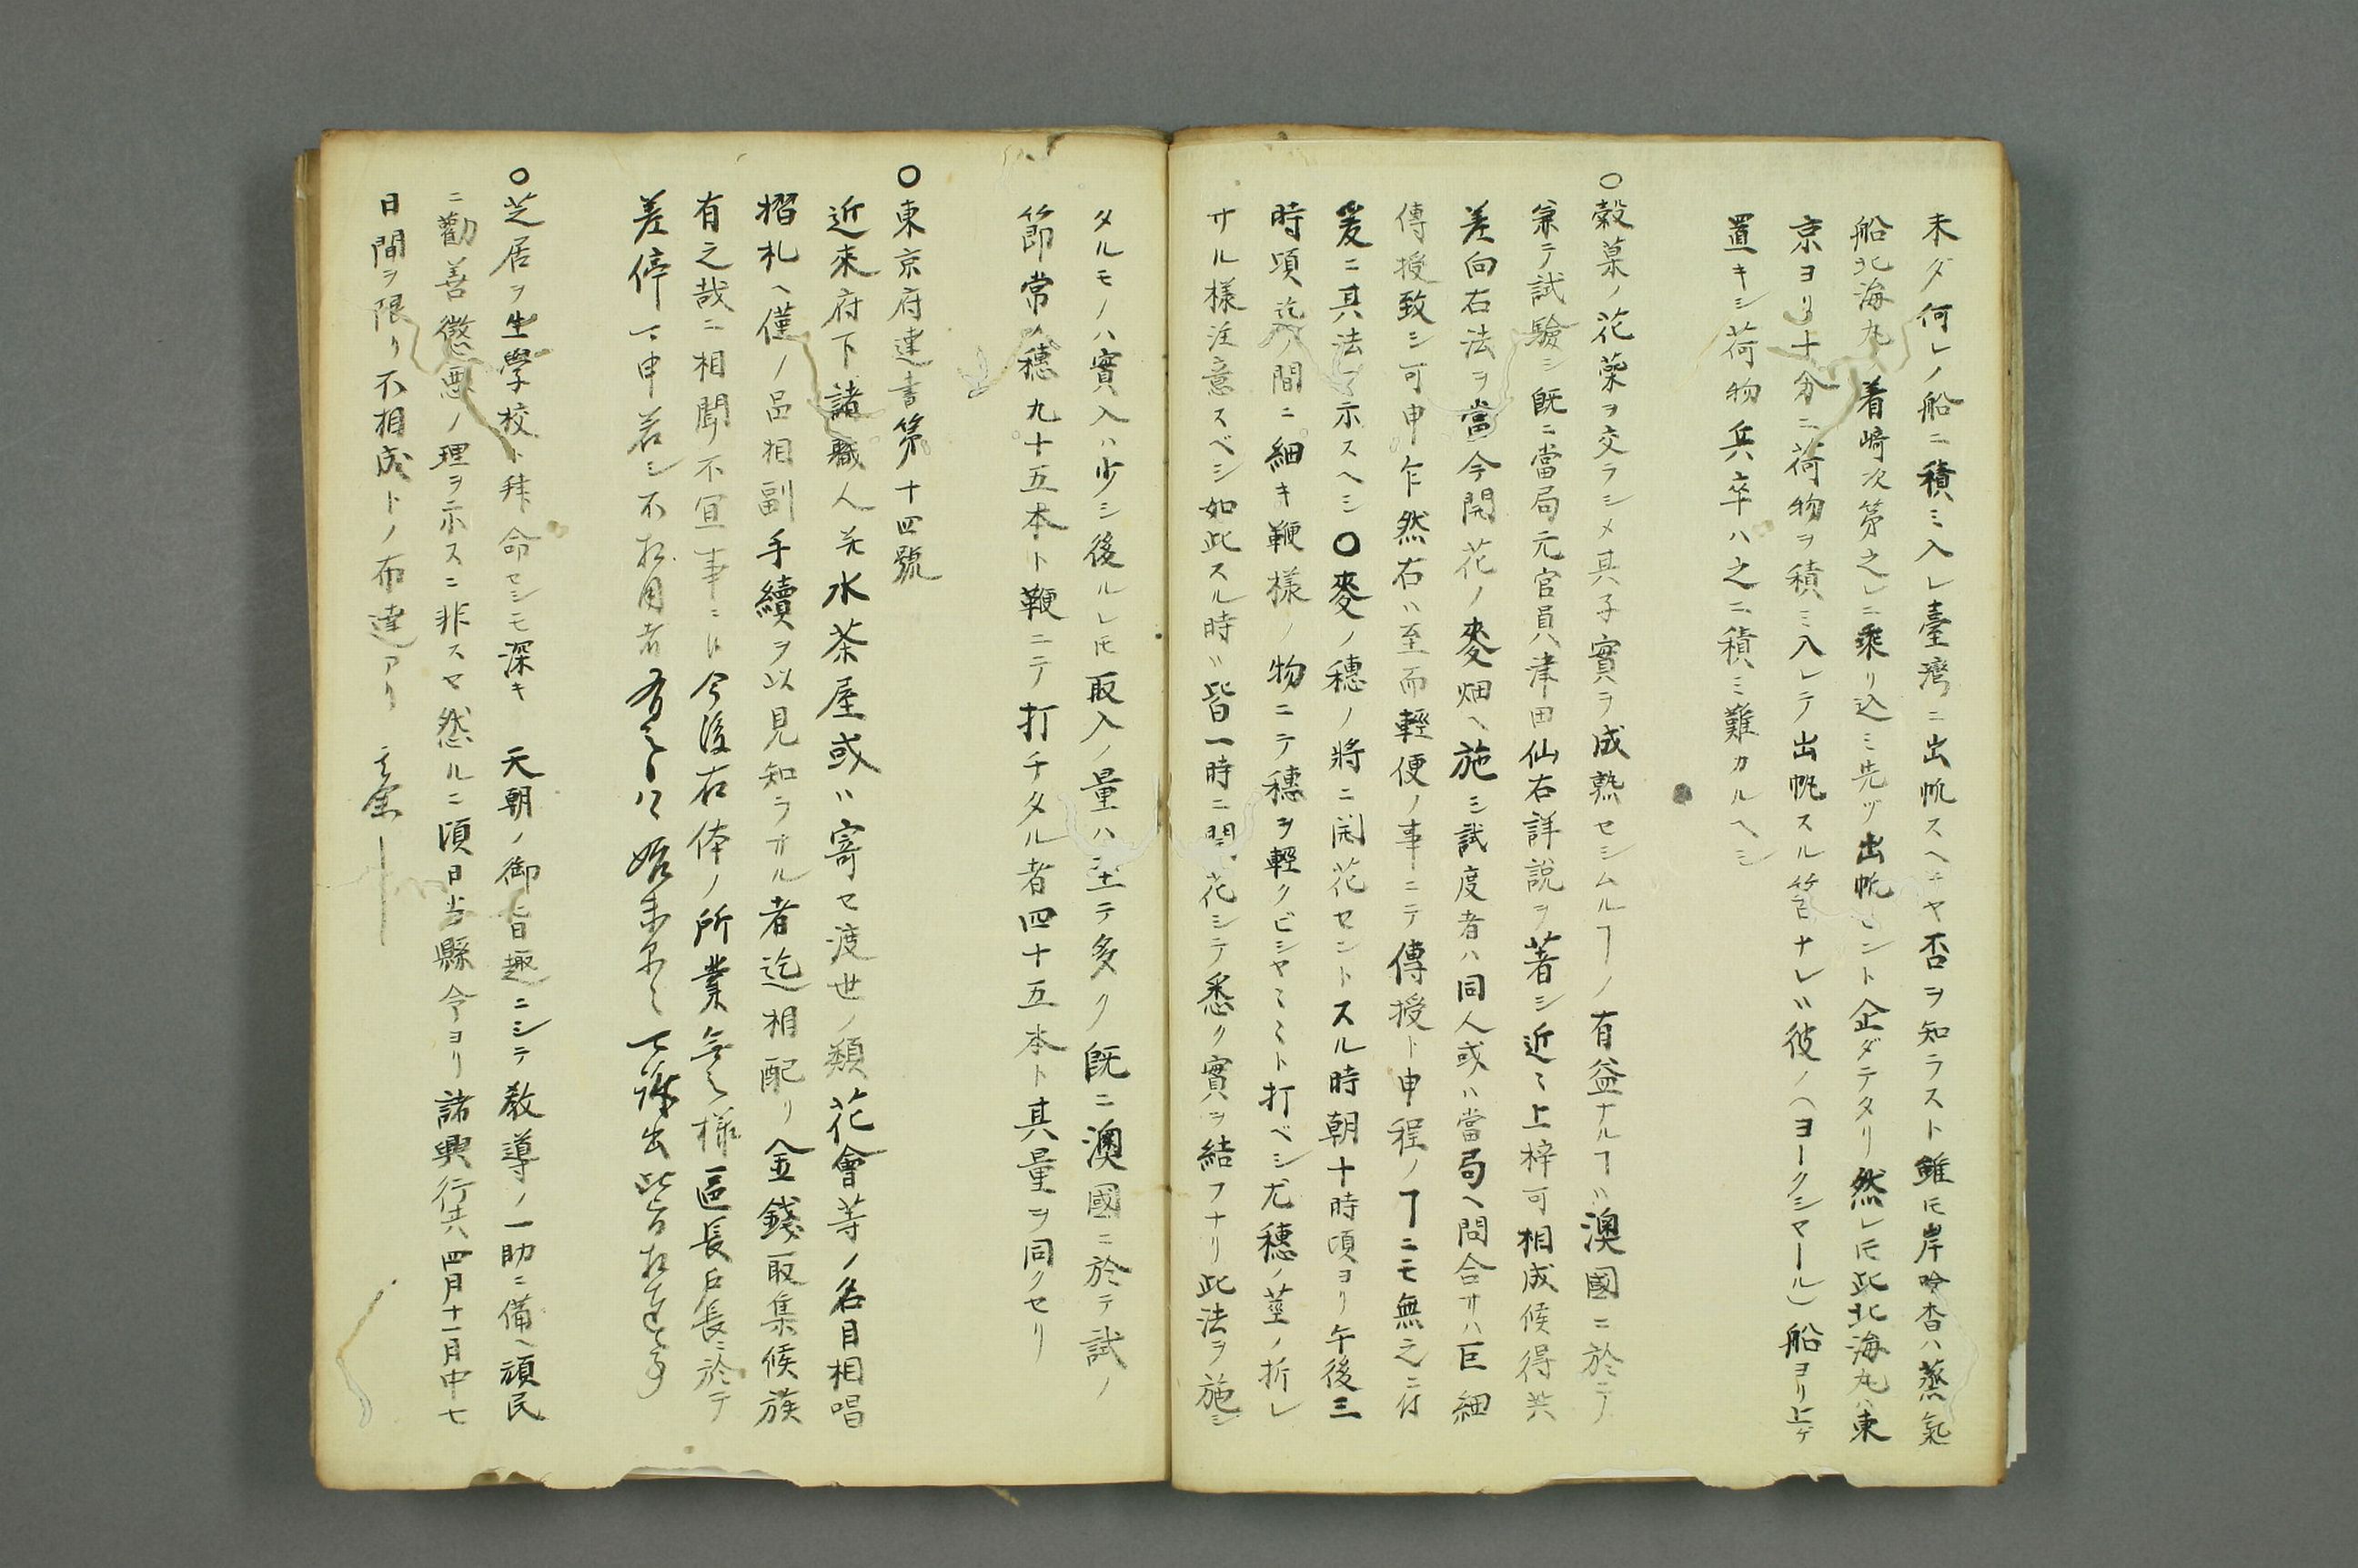 未ダ何レノ船ニ積ミ入レ臺灣ニ出帆スヘキヤ否ヲ知ラスト雖𪜈岸吟杳ハ蒸氣
船北海丸ノ着﨑次第之レニ乘リ込ミ先ヅ出帆セント企ダテタリ然レ𪜈此北海丸ハ東
京ヨリ十分ニ荷物ヲ積ミ入レテ出帆スル筈ナレハ彼ノ(ヨークシヤール)船ヨリ上ゲ
置キシ荷物兵卒ハ之ニ積ミ難カルヘシ
○穀菓ノ花蘂ヲ交ラシメ其子實ヲ成熟セシムルヿノ有益ナルヿハ澳國ニ於テ
兼テ試驗シ既ニ當局元官員津田仙右詳説ヲ著シ近々上梓可相成候得共
差向右法ヲ當今開花ノ麥畑ヘ施シ試度者ハ同人或ハ當局ヘ問合サハ巨細
傳授致シ可申乍然右ハ至而輕便ノ事ニテ傳授ト申程ノヿニモ無之ニ付
爰ニ其法ヲ示スヘシ○麥ノ穗ノ將ニ開花セントスル時朝十時頃ヨリ午後三
時頃迄ノ間ニ細キ鞭様ノ物ニテ穗ヲ輕クビシヤミミト打ベシ尤穗ノ莖ノ折レ
サル様注意スベシ如此スル時ハ皆一時ニ開花シテ悉ク實ヲ結フナリ此法ヲ施シ
タルモノハ實入ハ少シ後ルレ𪜈取入ノ量ハ至テ多ク既ニ澳國ニ於テ試ノ
節常ノ穗九十五本ト鞭ニテ打チタル者四十五本ト其量ヲ同クセリ
○東京府達書第十四號
近來府下諸職人并水茶屋或ハ寄セ渡世ノ類花會等ノ名目相唱
摺札ヘ僅ノ品相副手續ヲ以見知ラサル者迄相配リ金錢取集候族
有之哉ニ相聞不宜事ニ候今後右体ノ所業無之様區長戸長ニ於テ
差停可申若シ不相用者有之候ハヽ始末早々可訴出此旨相達候事
○芝居ヲ生學校ト拜命セシモ深キ　天朝ノ御旨趣ニシテ教導ノ一助ニ備ヘ頑民
ニ勸善懲悪ノ理ヲ示スニ非スヤ然ルニ頃日当縣令ヨリ諸興行共四月十一月中七
日間ヲ限リ不相成トノ布達アリ